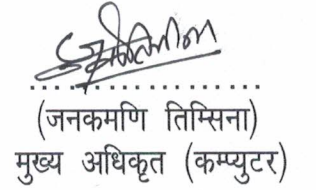 (जनकमणि तिम्सिना)
मुख्य अधिकृत (कम्प्युटर)